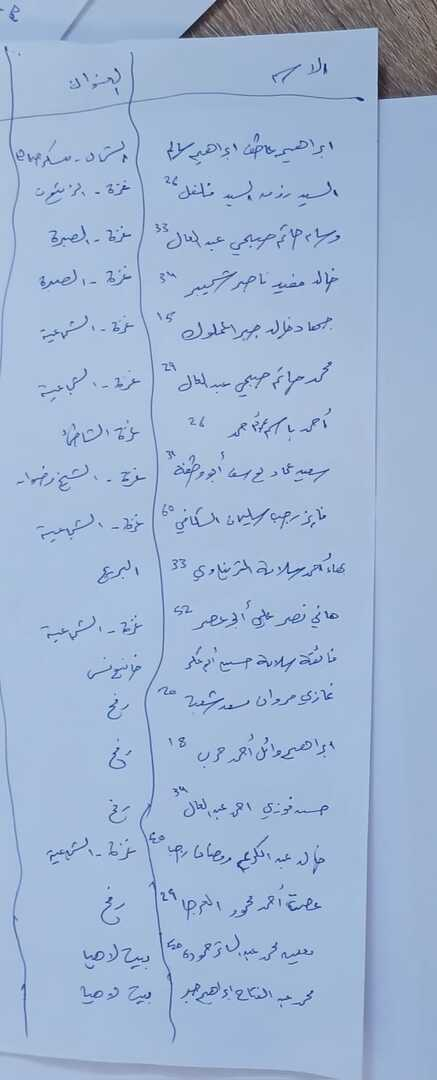 الاسم العنوان
ابراهيم عاطف ابراهيم سالم الشمال - معسكر جباليا
السيد رزق السيد فلفل 26 غزة - الزيتون
وسام حاتم صبحي عبد العال 33 غزة - الصبرة
خالد مفيد ناصر شحيبر 34 غزة - الصبرة
جهاد خالد جبر المملوك 15 غزة - الشجاعية
محمد حاتم صبحي عبد العال 29 غزة - الشجاعية
أحمد باسم أحمد 26 غزة الشاطئ
سعيد عماد أبو وطفة 31 غزة - الشيخ رضوان
فايز رجب سليمان السكافي 60 غزة - الشجاعية
بهاء أحمد سلامة الترباوي 33 البريج
هاني نصر علي أبو عصر 52 غزة - الشجاعية
فائقة سلامة حسين أبو عكر خانيونس
غازي مروان مسعد شعت 20 رفح
ابراهيم وائل أحمد حرب 18 رفح
حسن فوزي احمد عبد العال 34 رفح
خالد عبد الكريم رمضان رجب 40 غزة - الشجاعية
عصمت أحمد محمود العرجا 29 رفح
محمد عبد الستار حمودة بيت لاهيا
محمد عبد الفتاح ابراهيم جبر بيت لاهيا